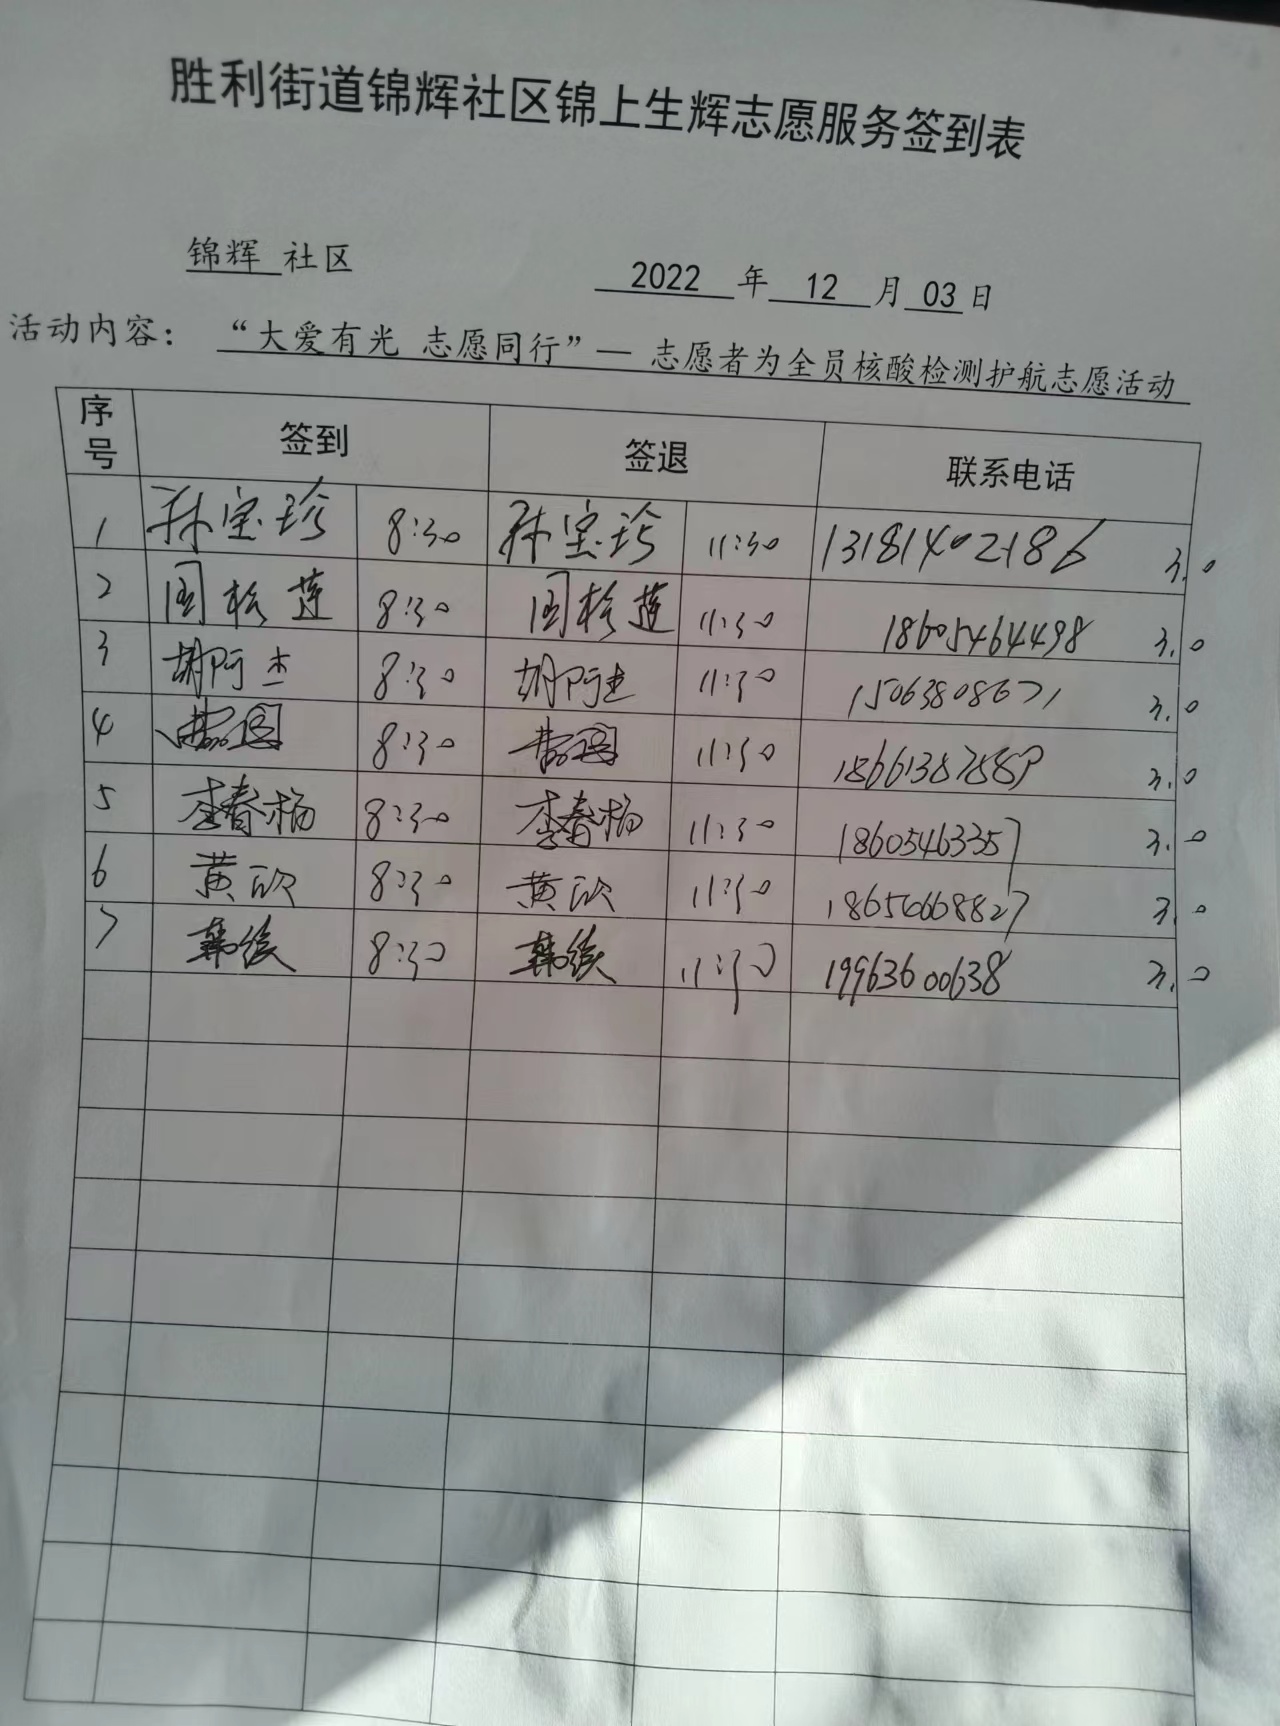 胜利街道锦辉社区锦上生辉志愿服务签到表
锦辉 社区 2022 年 12 月 03 日
活动内容： “大爱有光 志愿同行”— 志愿者为全员核酸检测护航志愿活动
序号 签到 签退 联系电话
1 孙宝珍 8:30 孙宝珍 11:30 13181402186 3.0
2 周桂莲 8:30 周桂莲 11:30 18605464498 3.0
3 胡阿杰 8:30 胡阿杰 11:30 15063808671 3.0
4 8:30 11:30 3.0
5 李春杨 8:30 李春杨 11:30 18605463357 3.0
6 黄欣 8:30 黄欣 11:30 18650668827 3.0
7 8:30 11:30 19963600638 3.0